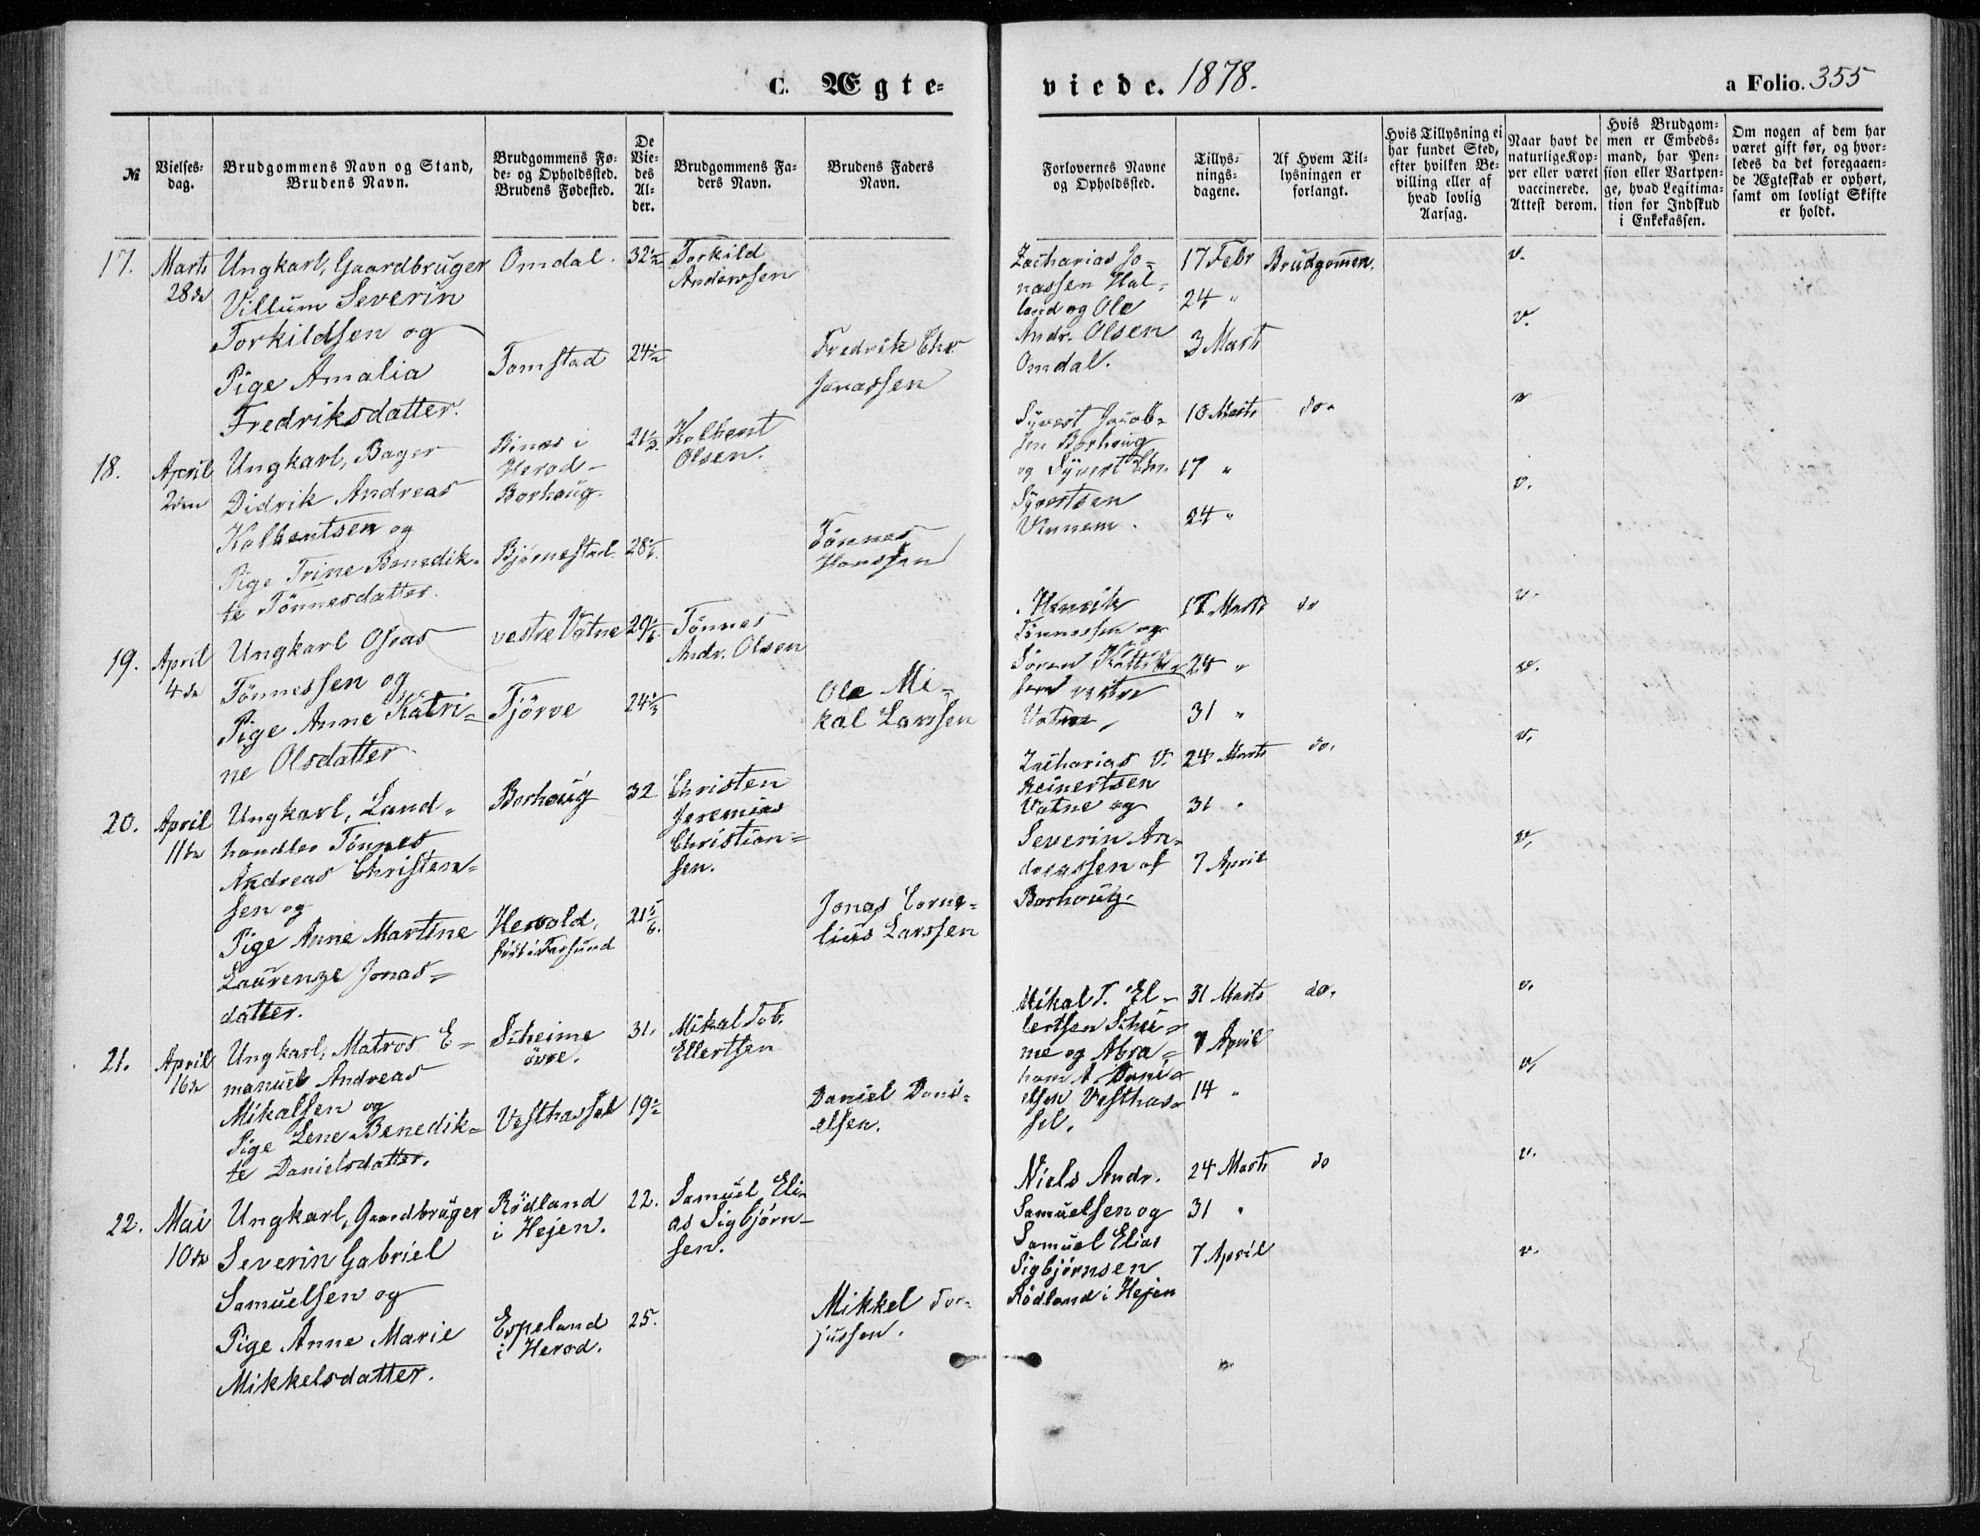 C. Ægte-
viede. 1878.
a Folio. 355
№
Vielses-
dag.
Brudgommens Navn og Stand,
Brudens Navn.
Brudgommens Fø-
de- og Opholdssted.
Brudens Fødested.
De
Vie-
des
Al-
der.
Brudgommens Fa-
ders Navn.
Brudens Faders
Navn.
Forlovernes Navne
og Opholdssted.
Tillys-
nings-
dagene.
Af Hvem Til-
lysningen er
forlangt.
Hvis Tillysning ei
har fundet Sted,
efter hvilken Be-
villing eller af
hvad lovlig
Aarsag.
Naar havt de
naturlige Kop-
per eller været
vaccinerede.
Attest derom.
Hvis Brudgom-
men er Embeds-
mand, har Pen-
sion eller Vartpen-
ge, hvad Legitima-
tion for Indskud
i Enkekassen.
Om nogen af dem har
været gift før, og hvor-
ledes da det foregaaen-
de Ægteskab er ophørt,
samt om lovligt Skifte
er holdt.
17.
Marts
28de
Ungkarl, Gaardbruger
Villum Severin
Torkildsen og
Pige Amalia
Fredriksdatter.
Omdal.
Tomstad
32½
24½
Torkild
Anderssen
Fredrik Chr.
Jonassen
Zacharias Jo-
nassen Hal-
land og Ole
Andr. Olsen
Omdal.
17 Febr
24 "
3 Marts
Brudgommen.
v.
v.
18.
April
2den
Ungkarl, Bager
Didrik Andreas
Kolbentsen og
Pige Trine Benedik-
te Tönnesdatter.
Herod-
Borhoug.
Bjørnestad.
Kolbent
Olsen.
Tönnes
Hanssen
Syvert Jacob-
sen Borhoug
og Syvert Chr.
Syvertsen
Vinnem.
10 Marts
17 "
24 "
do.
v
v.
19.
April
4de
Ungkarl Oseas
Tönnessen og
Pige Anne Katri-
ne Olsdatter
vestre Vatne
Tjörve
29⅙
24⅓
Tönnes
Andr. Olsen
Ole Mi-
kal Larssen
Henrik
Tönnessen og
Sören
vestre
Vatne,
17 Marts
24 "
31 "
do
v.
v.
20.
April
11te
Ungkarl, Land-
handler Tönnes
Andreas Christen-
sen og
Pige Anne Martine
Laurenze Jonas-
datter.
Borhoug
Hervold,
født i Farsund
32
21⅚
Christen
Jeremias
Christian-
sen.
Jonas Corne-
lius Larssen
Zacharias V.
Reinertsen
Vatne og
Severin An-
dreassen af
Borhoug.
24 Marts
31 "
7 April
do.
v.
v.
21.
April
16de
Ungkarl, Matros E-
manuel Andreas
Mikalsen og
Pige Lene Benedik-
te Danielsdatter.
Scheime
övre.
Vesthassel
31.
19½
Mikal Tob.
Ellertsen
Daniel Dani-
elsen.
Mikal T. El-
lertsen Schei-
me og Abra-
ham A. Dani-
elsen Vesthas-
sel.
31 Marts
7 April
14 "
do.
v.
v,
22.
Mai
10de
Ungkarl, Gaardbruger
Severin Gabriel
Samuelsen og
Pige Anne Marie
Mikkelsdatter.
Rödland
i Hejen.
Espeland
i Herod.
22.
25.
Samuel Eli-
as Sigbjørn-
sen.
Mikkel Tor-
jussen.
Niels Andr.
Samuelsen og
Samuel Elias
Sigbjørnsen
Rødland i Hejen
24 Marts
31 "
7 April
do
v.
v.